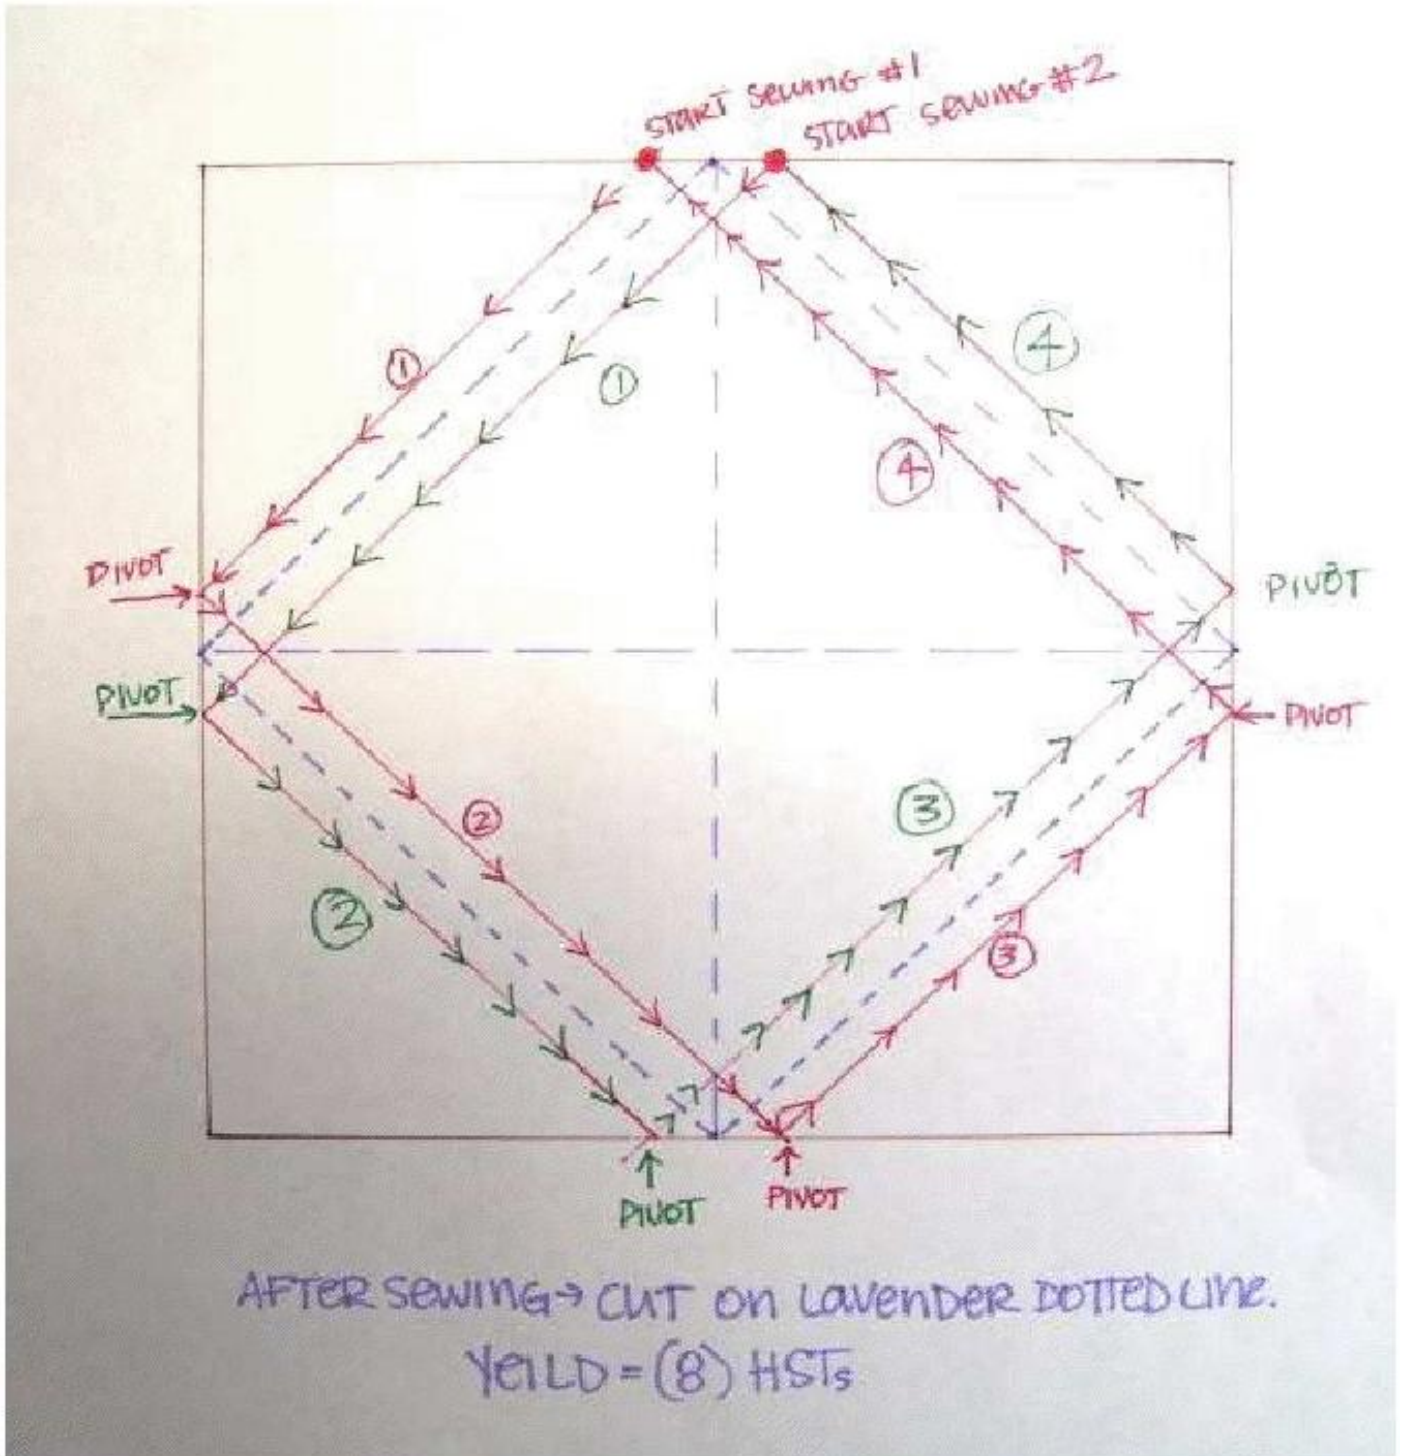 START SEWING #1
START SEWING #2
① ① ④
④
PIVOT
PIVOT
PIVOT
PIVOT
② ③
② ③
PIVOT PIVOT
AFTER SEWING → CUT ON LAVENDER DOTTED LINE.
YEILD = (8) HSTs